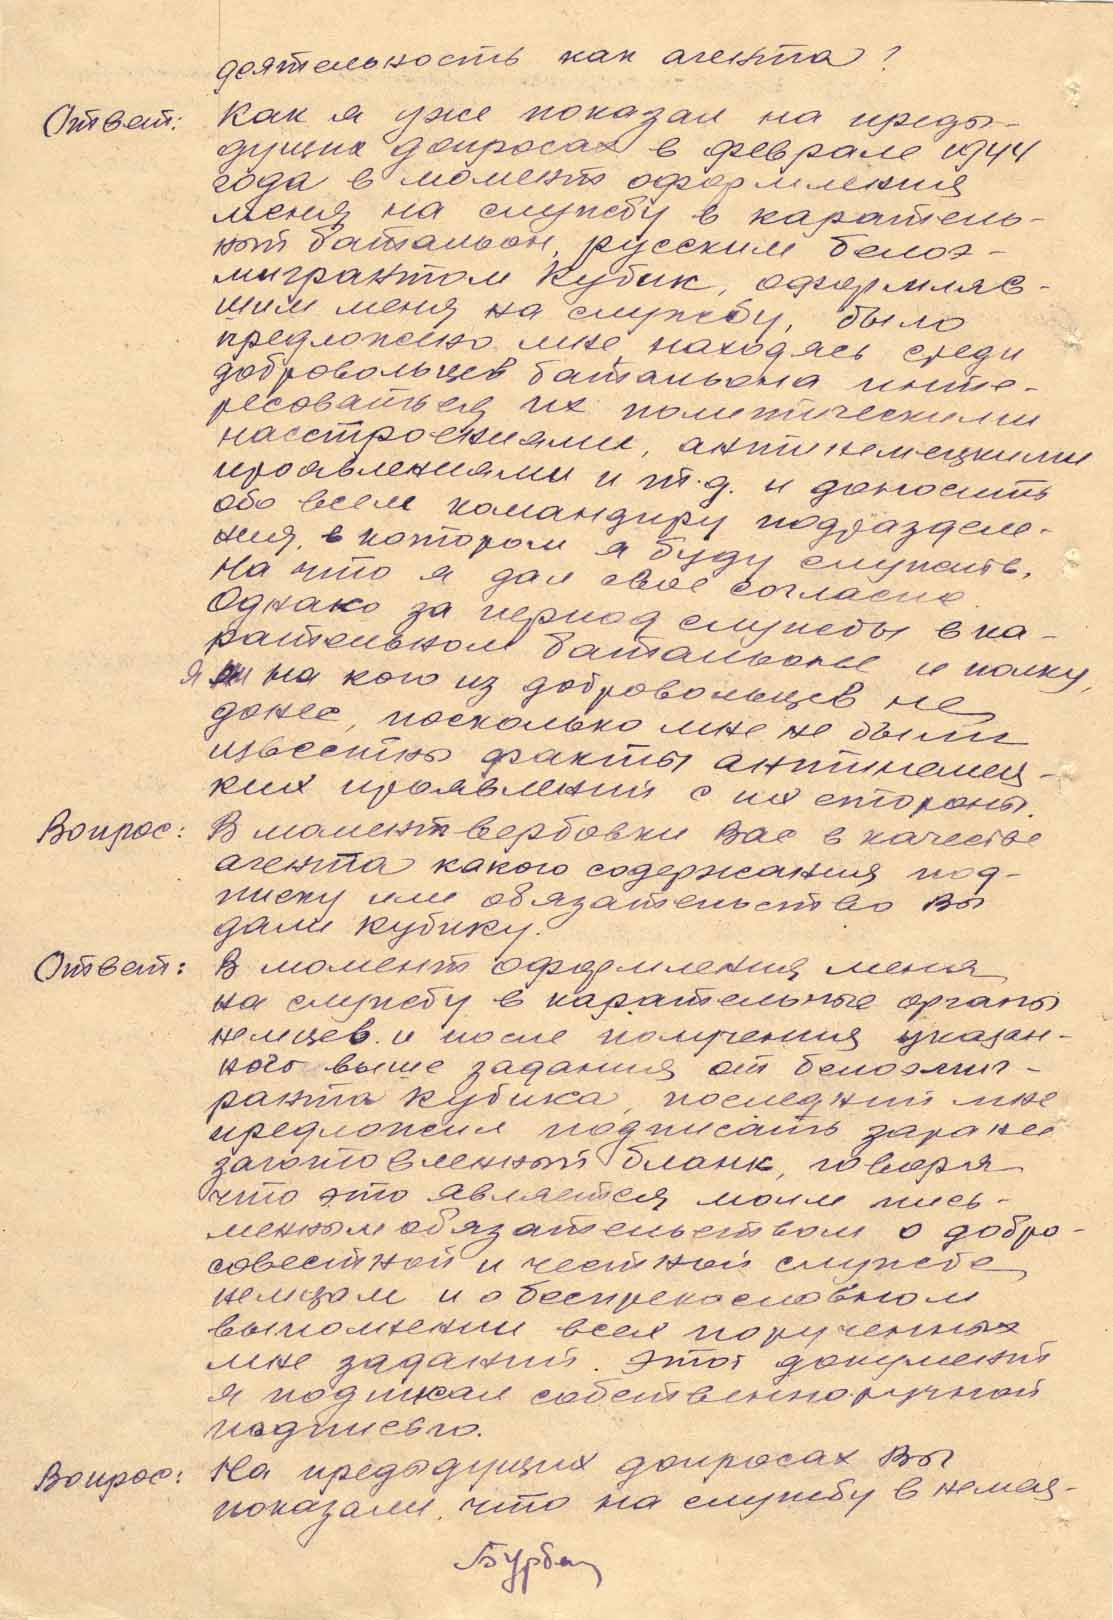 деятельность как агента?
Ответ: Как я уже показал на преды-
дущих допросах в феврале 1944
года в момент оформления
меня на службу в каратель-
ный батальон, русским белоэ-
мигрантом Кубик, оформляв-
шим меня на службу, было
предложено мне, находясь среди
добровольцев батальона инте-
ресоваться их политическими
насстроениями, антинемецкими
проявлениями и т.д. и доносить
обо всем командиру подразделе-
ния, в котором я буду служить,
На что я дал свое согласие.
Однако за период службы в ка-
рательном батальоне и полку,
я ни на кого из добровольцев не
донес, поскольку мне не были
известны факты антинемец-
ких проявлений с их стороны.
Вопрос: В момент вербовки Вас в качестве
агента какого содержания под-
писку или обязательство Вы
дали Кубику.
Ответ: В момент оформления меня
на службу в карательные органы
немцев и после получения указан-
ного выше задания от белоэмиг-
ранта Кубика, последний мне
предложил подписать заранее
заготовленный бланк, говоря
что это является моим пись-
менным обязательством о добро-
совестной и честной службе
немцам и о беспрекословном
выполнении всех порученных
мне заданий. Этот документ
я подписал собственноручной
подписью.
Вопрос: На предыдущих допросах Вы
показали, что на службу в немец-